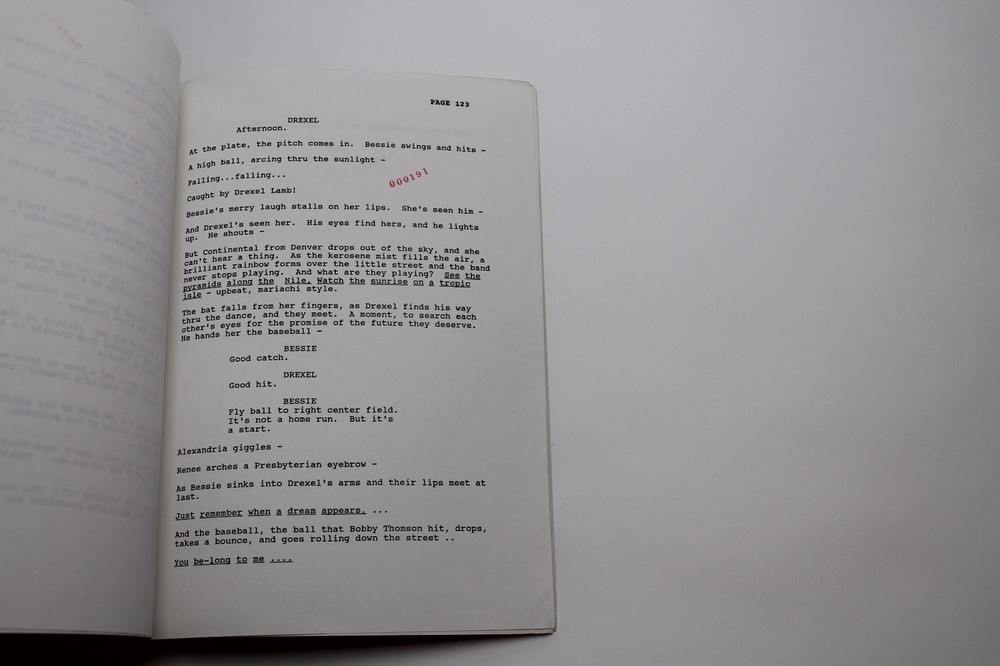 PAGE 123
DREXEL
Afternoon.
At the plate, the pitch comes in.  Bessie swings and hits -
A high ball, arcing thru the sunlight -
Falling...falling...
000191
Caught by Drexel Lamb!
Bessie's merry laugh stalls on her lips.  She's seen him -
And Drexel's seen her.  His eyes find hers, and he lights
up.  He shouts -
But Continental from Denver drops out of the sky, and she
can't hear a thing.  As the kerosene mist fills the air, a
brilliant rainbow forms over the little street and the band
never stops playing.  And what are they playing?  See the
pyramids along the  Nile, Watch the sunrise on a tropic
isle - upbeat, mariachi style.
The bat falls from her fingers, as Drexel finds his way
thru the dance, and they meet.  A moment, to search each
other's eyes for the promise of the future they deserve.
He hands her the baseball -
BESSIE
Good catch.
DREXEL
Good hit.
BESSIE
Fly ball to right center field.
It's not a home run.  But it's
a start.
Alexandria giggles -
Renee arches a Presbyterian eyebrow -
As Bessie sinks into Drexel's arms and their lips meet at
last.
Just remember when a dream appears, ...
And the baseball, the ball that Bobby Thomson hit, drops,
takes a bounce, and goes rolling down the street ..
You be-long to me ....